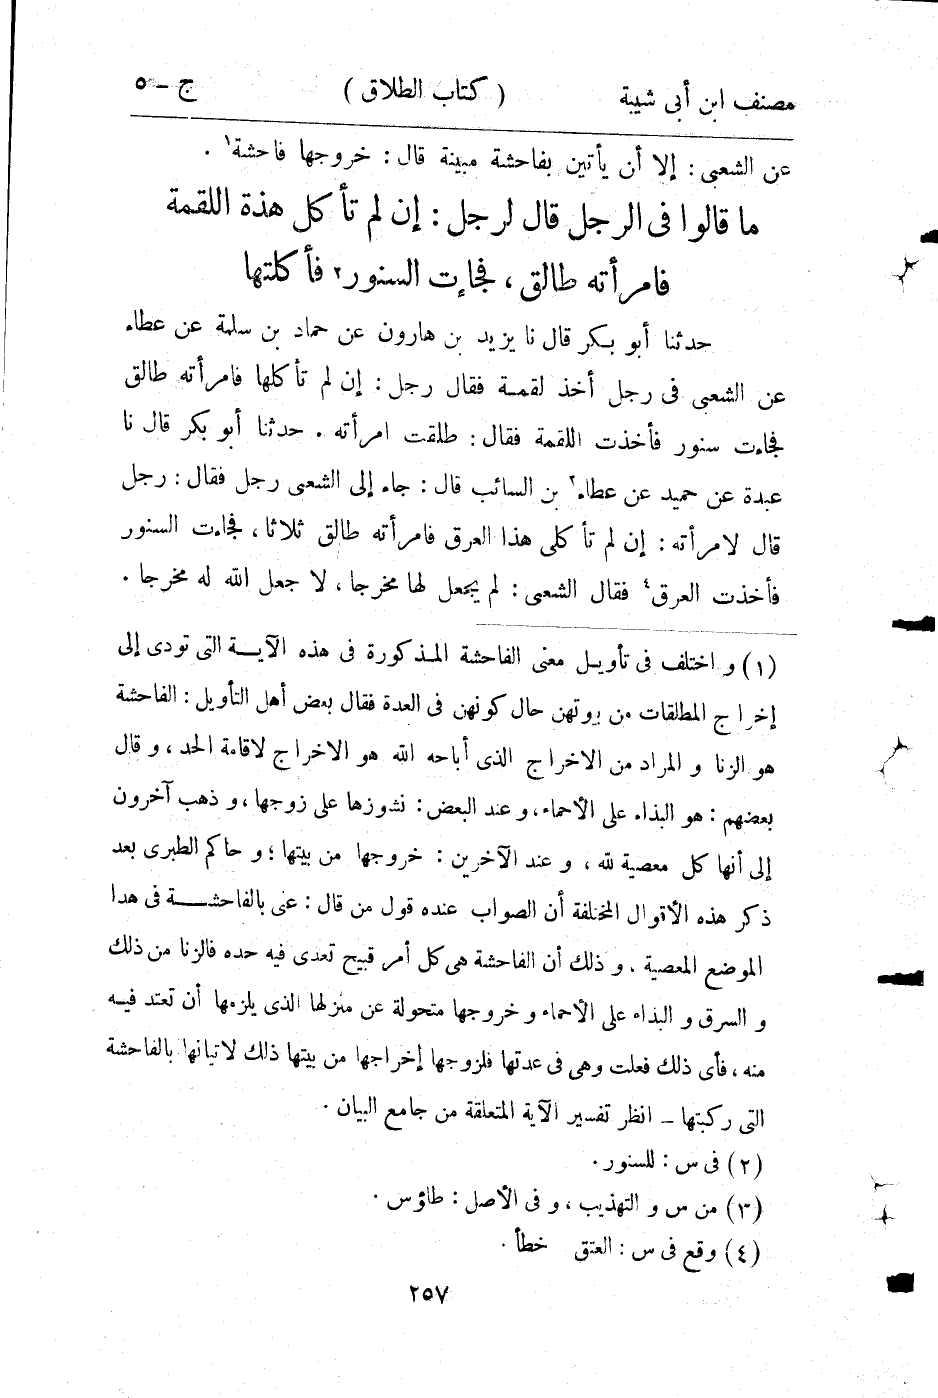 مصنف ابن أبى شيبة ( كتاب الطلاق ) ج ـ ٥
عن الشعبى : إلا أن يأتين بفاحشة مبينة قال : خروجها فاحشة١ .
ما قالوا فى الرجل قال لرجل : إن لم تأكل هذة اللقمة
فامرأته طالق ، فجاءت السنور٢ فأكلتها
حدثنا أبو بكر قال نا يزيد بن هارون عن حماد بن سلمة عن عطاء
عن الشعبى فى رجل أخذ لقمة فقال رجل : إن لم تأكلها فامرأته طالق
فجاءت سنور فأخذت اللقمة فقال : طلقت امرأته . حدثنا أبو بكر قال نا
عبدة عن حميد عن عطاء٣ بن السائب قال : جاء إلى الشعبى رجل فقال : رجل
قال لامرأته : إن لم تأكلى هذا العرق فامرأته طالق ثلاثا ، فجاءت السنور
فأخذت العرق٤ فقال الشعبى : لم يجعل لها مخرجا ، لا جعل الله له مخرجا .
(١) و اختلف فى تأويل معنى الفاحشة المذكورة فى هذه الآية التى تودى إلى
إخراج المطلقات من بيوتهن حال كونهن فى العدة فقال بعض أهل التأويل : الفاحشة
هو الزنا و المراد من الاخراج الذى أباحه الله هو الاخراج لاقامة الحد ، و قال
بعضهم : هو البذاء على الأحماء ، و عند البعض : نشوزها على زوجها ، و ذهب آخرون
إلى أنها كل معصية لله ، و عند الآخرين : خروجها من بيتها ؛ و حاكم الطبرى بعد
ذكر هذه الأقوال المختلفة أن الصواب عنده قول من قال : عنى بالفاحشة فى هدا
الموضع المعصية . و ذلك أن الفاحشة هى كل أمر قبيح تعدى فيه حده فالزنا من ذلك
و السرق و البذاء على الأحماء و خروجها متحولة عن منزلها الذى يلزمها أن تعتد فيه
منه ، فأى ذلك فعلت وهى فى عدتها فلزوجها إخراجها من بيتها ذلك لاتيانها بالفاحشة
التى ركبتها ـ انظر تفسير الآية المتعلقة من جامع البيان .
(٢) فى س : للسنور .
(٣) من س و التهذيب ، و فى الأصل : طاؤس .
(٤) وقع فى س : العتق خطأ .
٢٥٧